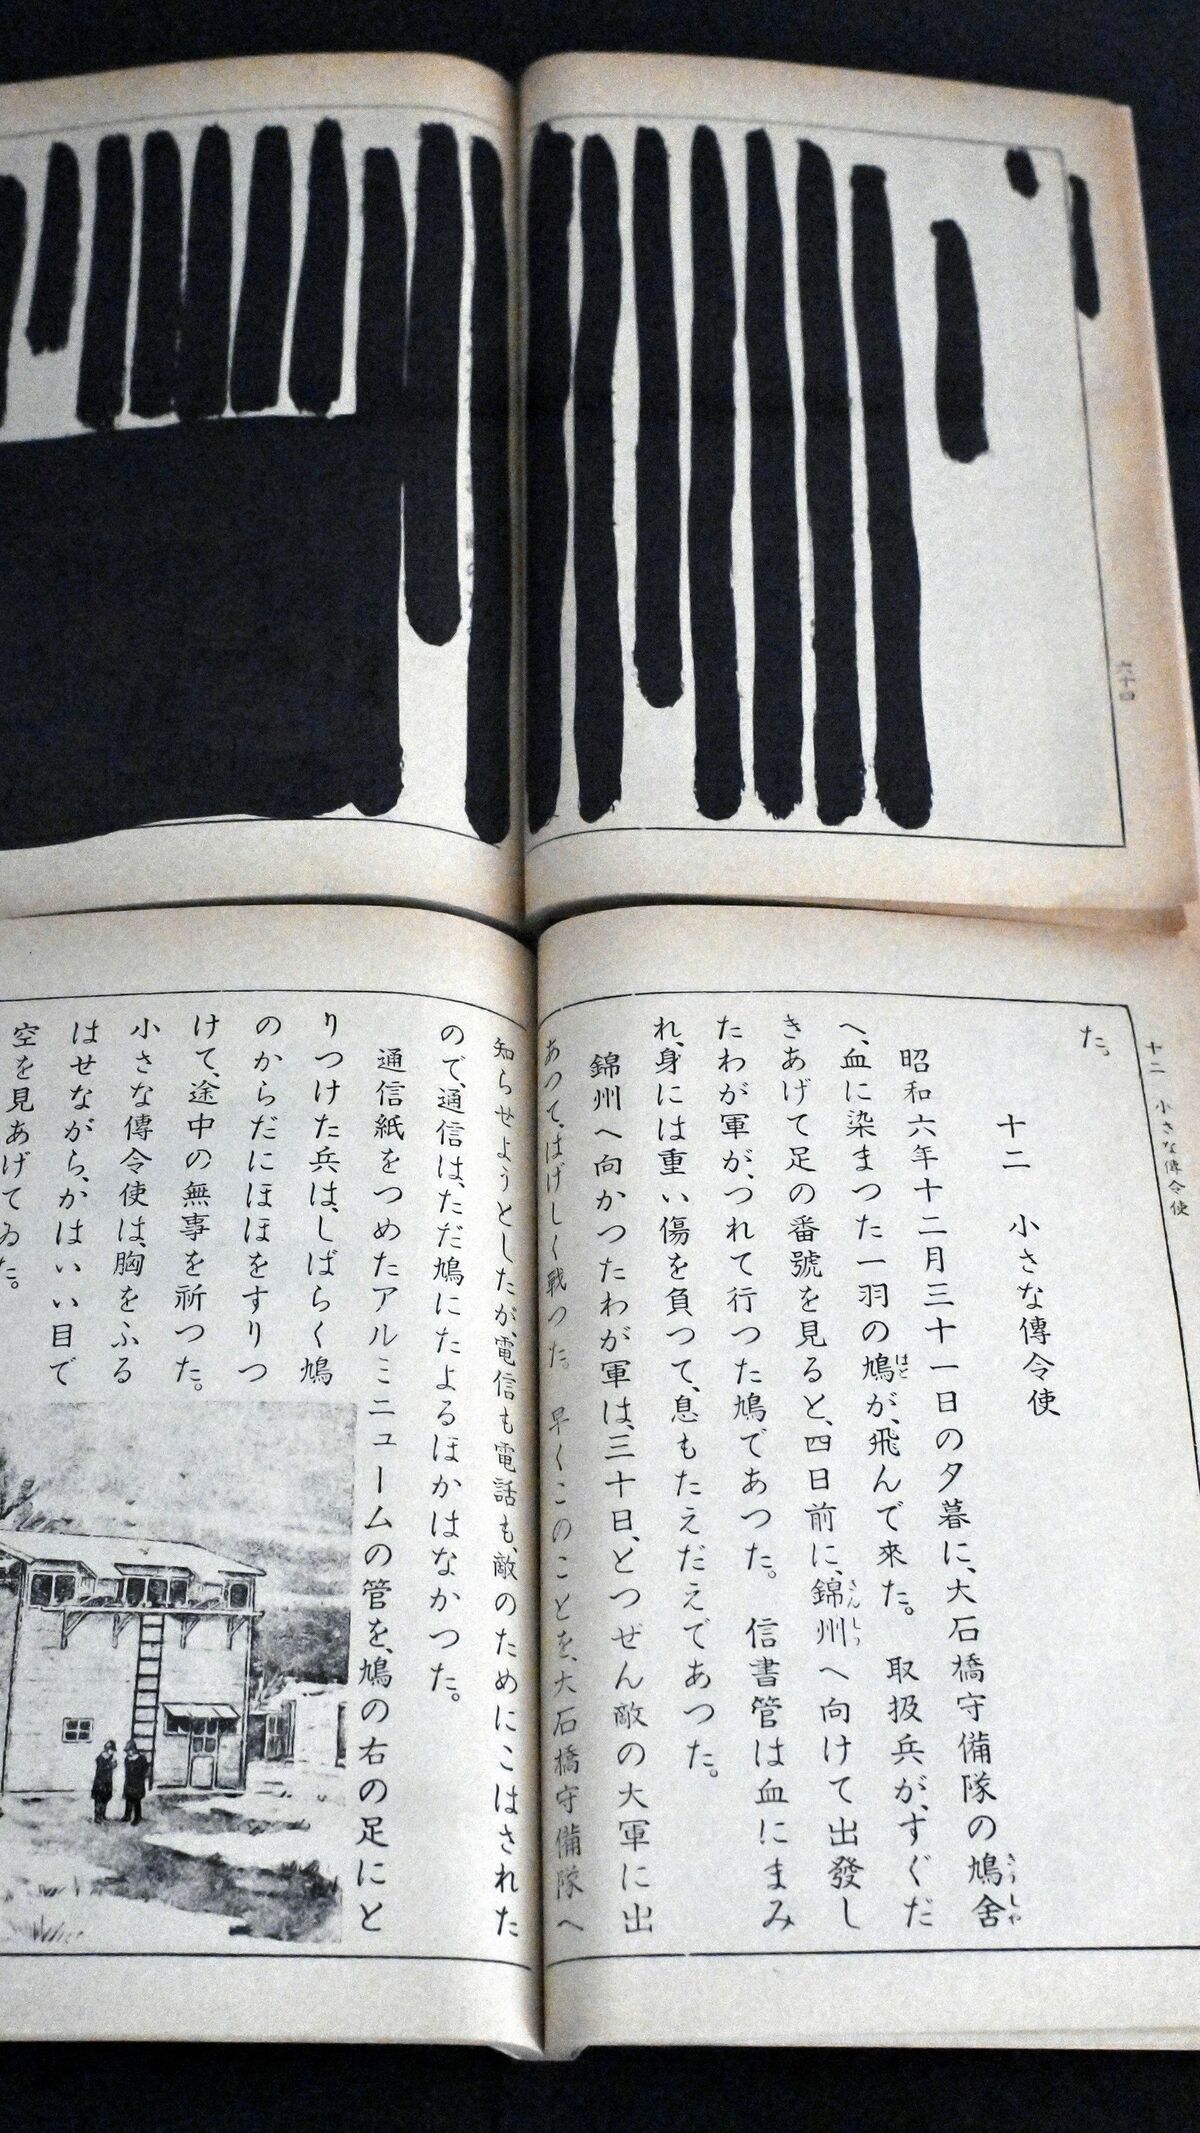 六十四
十二 小さな傳令使
た。
十二 小さな傳令使
昭和六年十二月三十一日の夕暮に、大石橋守備隊の鳩舍
へ、血に染まつた一羽の鳩が、飛んで來た。取扱兵が、すぐだ
きあげて足の番號を見ると、四日前に、錦州へ向けて出發し
たわが軍が、つれて行つた鳩であつた。信書管は血にまみ
れ、身には重い傷を負つて、息もたえだえであつた。
錦州へ向かつたわが軍は、三十日、とつぜん敵の大軍に出
あつて、はげしく戰つた。早くこのことを、大石橋守備隊へ
知らせようとしたが、電信も電話も、敵のためにこはされた
ので、通信は、ただ鳩にたよるほかはなかつた。
通信紙をつめたアルミニュームの管を、鳩の右の足にと
りつけた兵は、しばらく鳩
のからだにほほをすりつ
けて、途中の無事を祈つた。
小さな傳令使は、胸をふる
はせながら、かはいい目で
空を見あげてゐた。